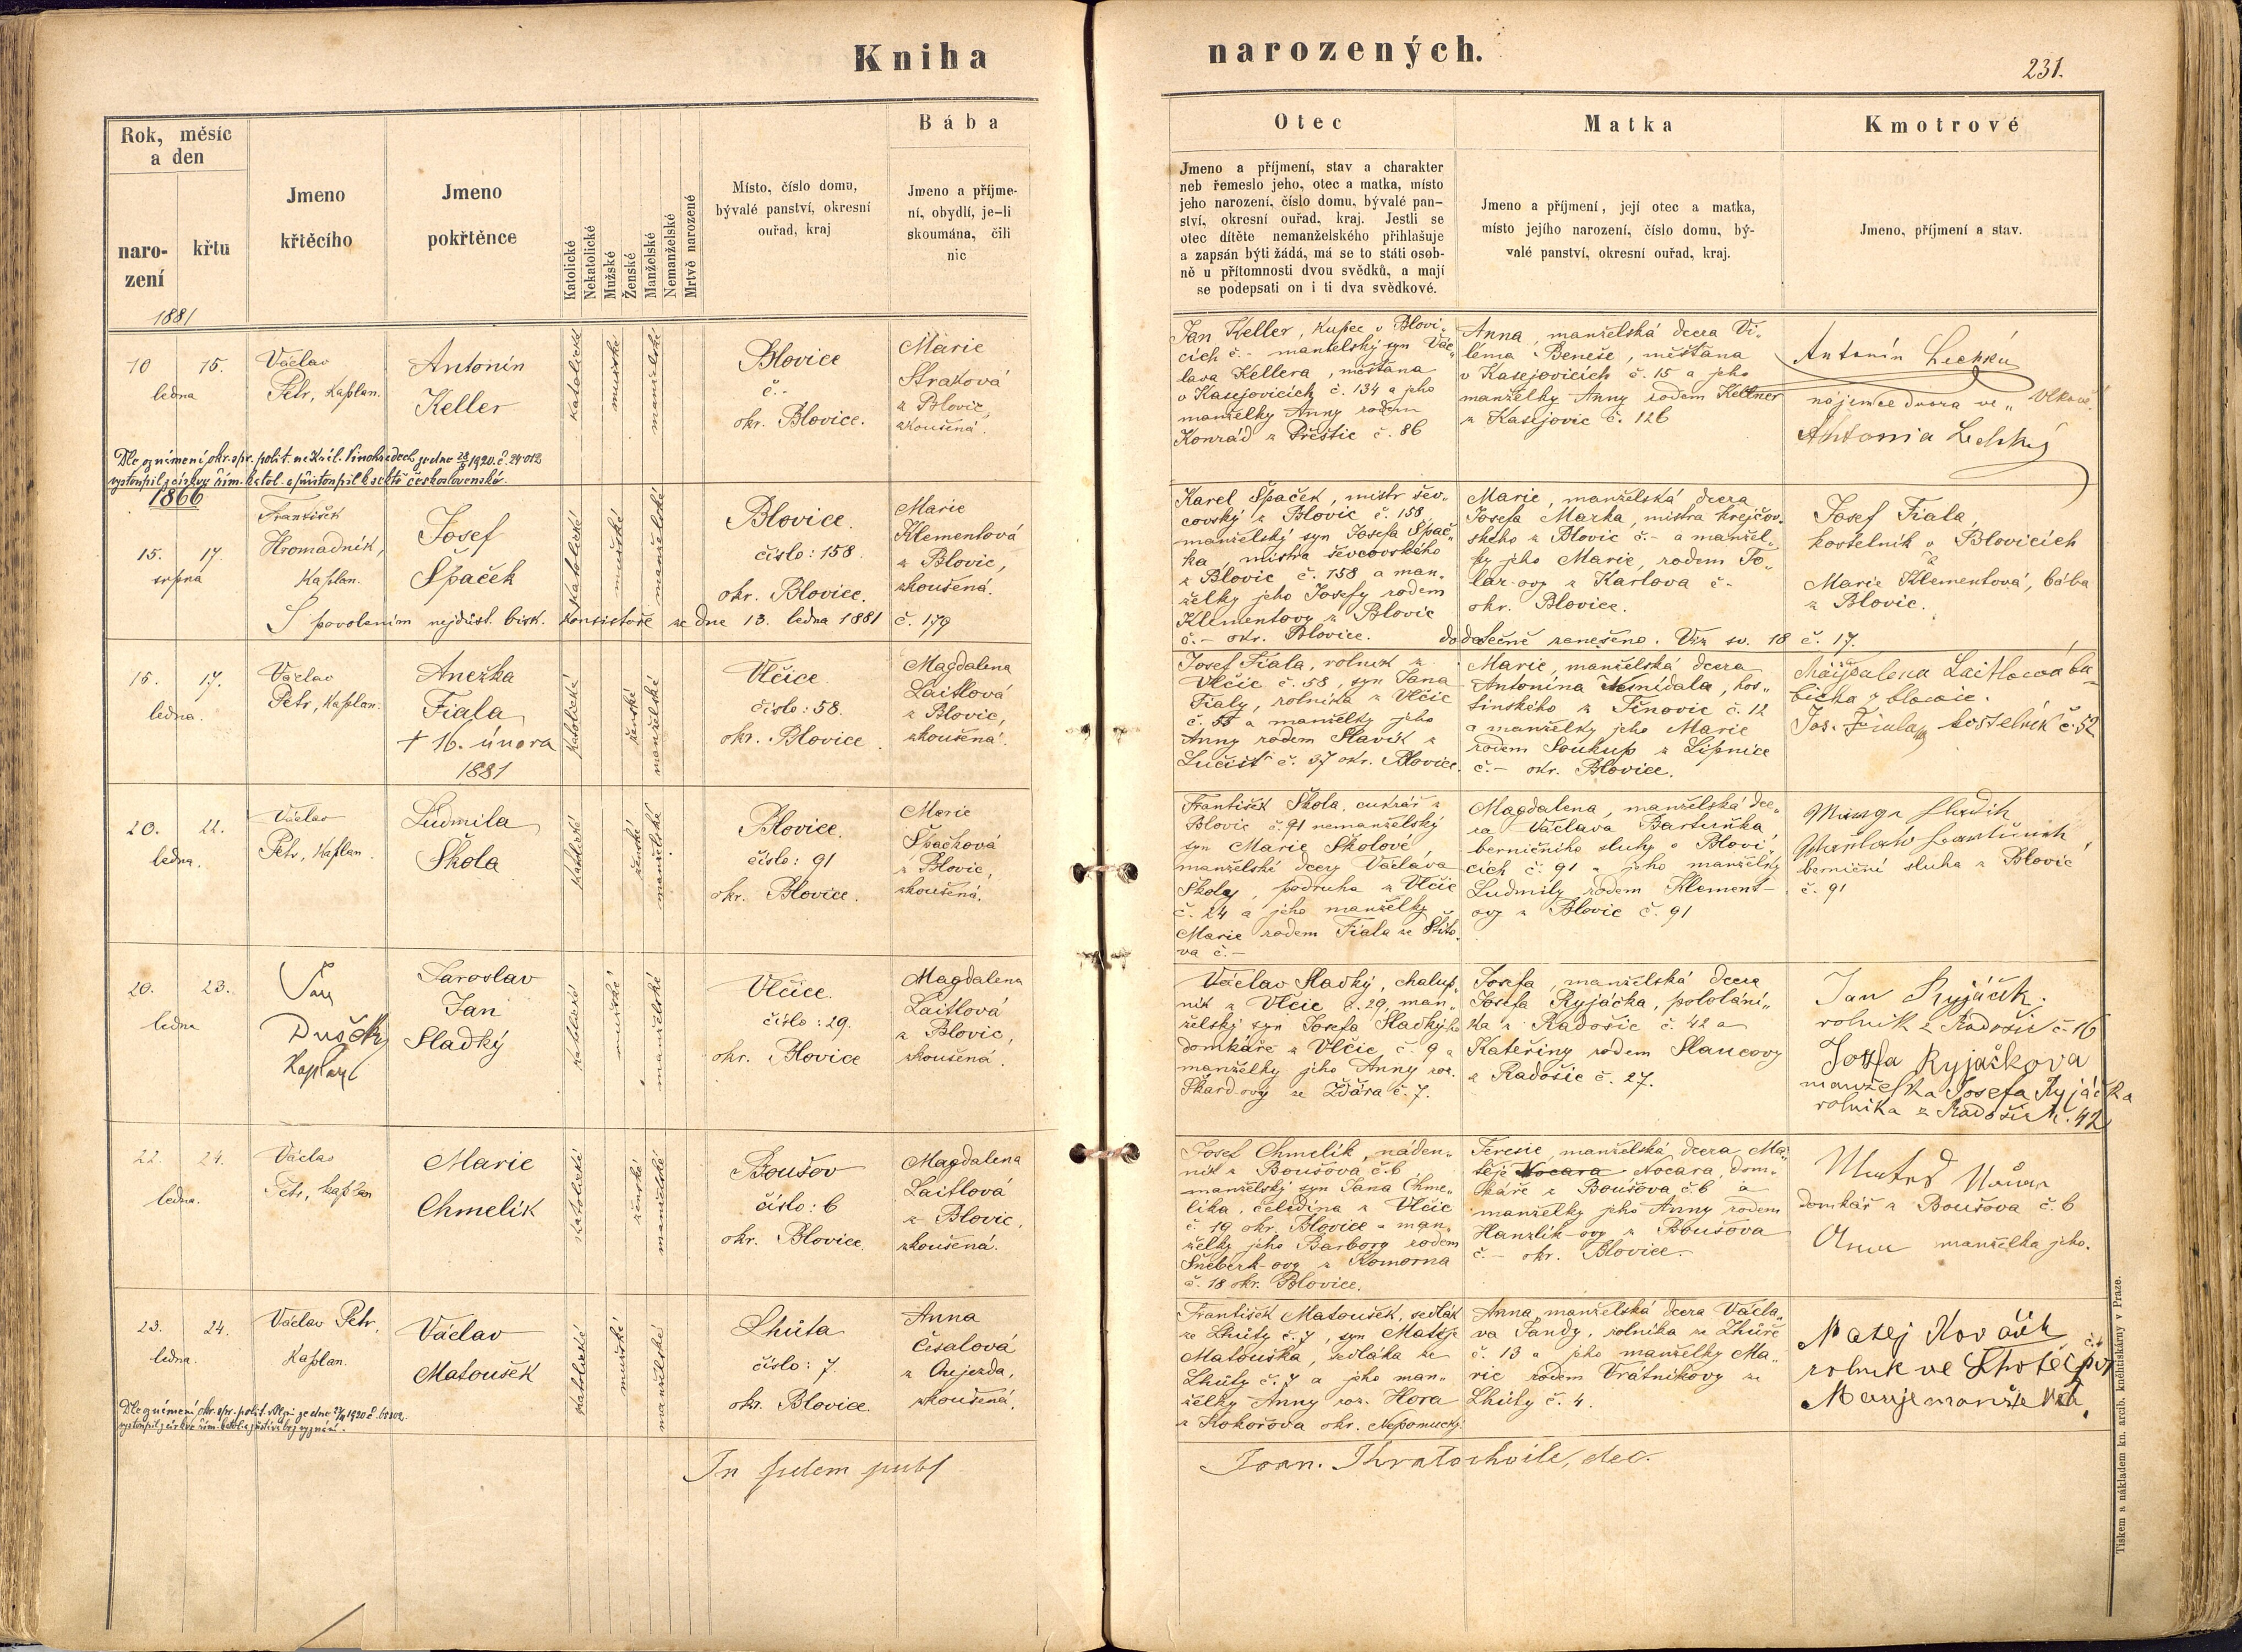 Kniha narozených.
231.
Rok, měsíc
a den
naro-
zení
křtu
1881
Jmeno
křtěcího
Jmeno
pokřtěnce
Katolické
Nekatolické
Mužské
Ženské
Manželské
Nemanželské
Mrtvě narozené
Místo, číslo domu,
bývalé panství, okresní
ouřad, kraj
Bába
Jmeno a příjme-
ní, obydlí, je-li
skoumána, čili
nic
Otec
Jmeno a příjmení, stav a charakter
neb řemeslo jeho, otec a matka, místo
jeho narození, číslo domu, bývalé pan-
ství, okresní ouřad, kraj. Jestli se
otec dítěte nemanželského přihlašuje
a zapsán býti žádá, má se to státi osob-
ně u přítomnosti dvou svědků, a mají
se podepsati on i ti dva svědkové.
Matka
Jmeno a příjmení, její otec a matka,
místo jejího narození, číslo domu, bý-
valé panství, okresní ouřad, kraj.
Kmotrové
Jmeno, příjmení a stav.
10 15.
ledna
Václav
Petr, Kaplan.
Antonín
Keller
katolické
mužské
manželské
Blovice
č.-
okr. Blovice.
Marie
Straková
z Blovic,
zkoušená.
Jan Keller, kupec v Blovi-
cích č.- manželský syn Vác-
lava Kellera, měšťana
v Kasejovicích č. 134 a jeho
manželky Anny rodem
Konrád z Přeštic č. 86
Anna, manželská dcera Vi-
léma Beneše, měšťana
v Kasejovicích č. 15 a jeho
manželky Anny rodem Kettner
z Kasejovic č. 126
Antonín
nájemce dvora ve „
Antonia
Dle oznámení okr. spr. polit. na Král. Vinohradech ze dne 28/5 1920. č. 24012
vystoupil z církve řím.-katol. a přistoupil k sektě československé.
1866
15. 17.
srpna
František
Hromadník,
Kaplan.
Josef
Špaček
katolické
mužské
manželské
Blovice.
číslo: 158.
okr. Blovice.
Marie
Klementová
z Blovic,
zkoušená.
Karel Špaček, mistr šev-
covský z Blovic č. 158,
manželský syn Josefa Špač-
ka, mistra ševcovského
z Blovic č. 158 a man-
želky jeho Josefy rodem
Klementovy z Blovic
č.- okr. Blovice.
Marie, manželská dcera
Josefa Marka, mistra krejčov-
ského z Blovic č.- a manžel-
ky jeho Marie, rodem To-
lar-ovy z Karlova č.-
okr. Blovice.
Josef Fiala,
kostelník v Blovicích
a
Marie Klementová, bába
z Blovic.
S povolením nejdůst. bisk. konsistoře ze dne 13. ledna 1881 č. 179 dodatečně zanešeno. Viz sv. 18 č. 17.
15. 17.
ledna.
Václav
Petr, Kaplan.
Anežka
Fiala
† 16. února
1881
katolické
ženské
manželské
Vlčice.
číslo: 58.
okr. Blovice.
Magdalena
Laitlová
z Blovic,
zkoušená.
Josef Fiala, rolník z
Vlčic č. 58, syn Jana
Fialy, rolníka z Vlčic
č. a manželky jeho
Anny rodem Slavík z
Lučišť č. 37 okr. Blovice.
Marie, manželská dcera
Antonína Nesnídala, hos-
tinského z č. 12
a manželky jeho Marie
rodem Soukup z Lipnice
č.- okr. Blovice.
Magdalena Laitlowá ba-
bička z blowic.
Jos. Fiala kostelník č. 52
20. 22.
ledna.
Václav
Petr, Kaplan.
Ludmila
Škola
katolické
ženské
manželské
Blovice.
číslo: 91
okr. Blovice.
Marie
Špačková
z Blovic,
zkoušená.
František Škola, cukrář z
Blovic č. 91 nemanželský
syn Marie Školové,
manželské dcery Václava
Školy, podruha z Vlčic
č. 24 a jeho manželky
Marie rodem Fiala ze Štíto-
va č.-
Magdalena, manželská dce-
ra Václava Bartuňka
berničního sluhy v Blovi-
cích č. 91 a jeho manželky
Ludmily rodem Klement-
ovy z Blovic č. 91
berniční sluha z Blovic
č. 91
20. 23.
ledna
Jan
Dušek
Kaplan
Jaroslav
Jan
Sladký
katolické
mužské
manželské
Vlčice.
číslo: 29.
okr. Blovice
Magdalena
Laitlová
z Blovic,
zkoušená.
Václav Sladký, chalup-
ník z Vlčic č. 29, man-
želský syn Josefa Sladkýho
domkáře z Vlčic č. 9 a
manželky jeho Anny roz.
Škard-ovy ze Ždára č. 7.
Josefa, manželská dcera
Josefa Ryjáčka, pololání-
ka z Radošic č. 42 a
Kateřiny rodem Slancovy
z Radošic č. 27.
Jan Ryjáček.
rolník z Radošic č. 16
Josefa Ryjačkova
manželka Josefa Ryjáčka
rolníka z Radošic č. 42
22. 24.
ledna.
Václav
Petr, kaplan
Marie
Chmelík
katolické
ženské
manželské
Boušov
číslo: 6
okr. Blovice.
Magdalena
Laitlová
z Blovic,
zkoušená.
Josef Chmelík, náden-
ník z Boušova č. 6
manželský syn Jana Chme-
líka, čeledína z Vlčic
č. 19 okr. Blovice a man-
želky jeho Barbory rodem
Šneberk-ovy z Komorna
č. 18 okr. Blovice.
Teresie, manželská dcera Ma-
těje Nocara Nocara, dom-
káře z Boušova č. 6 a
manželky jeho Anny rodem
Hanzlík-ovy z Boušova
č.- okr. Blovice.
domkář z Boušova č. 6
Anna manželka jeho.
23. 24.
ledna.
Václav Petr,
Kaplan.
Václav
Matoušek
katolické
mužské
manželské
Lhůta
číslo: 7.
okr. Blovice.
Anna
Česalová
z Oujezda,
zkoušená.
František Matoušek, sedlák
ze Lhůty č. 7, syn Matěje
Matouška, sedláka ze
Lhůty č. 7 a jeho man-
želky Anny roz. Hora
z Kokořova okr. Nepomucký.
Anna, manželská dcera Václa-
va Jandy, rolníka ze Lhůtě
č. 13 a jeho manželky Ma-
rie rodem Vrátníkovy ze
Lhůty č. 4.
Matej Kovářik
rolnik ve Lhotě č.
Marije manželka
Dle oznámení okr. spr. polit. v Plzni ze dne 1920 č.
vystoupil z církve řím. katol. a jest bez vyznání.
In fidem publ
Joan. Kratochvile, dec.
Tiskem a nákladem kn. arcib. knihtiskárny v Praze.